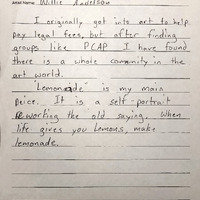 Artist Name: Willie Anderson
I originally got into art to help
pay legal fees, but after finding
groups like PCAP I have found
there is a whole community in the
art world.
"Lemonade" is my main
peice. It is a self-portrait
Reworking the old saying. When
life gives you Lemons, make
lemonade.